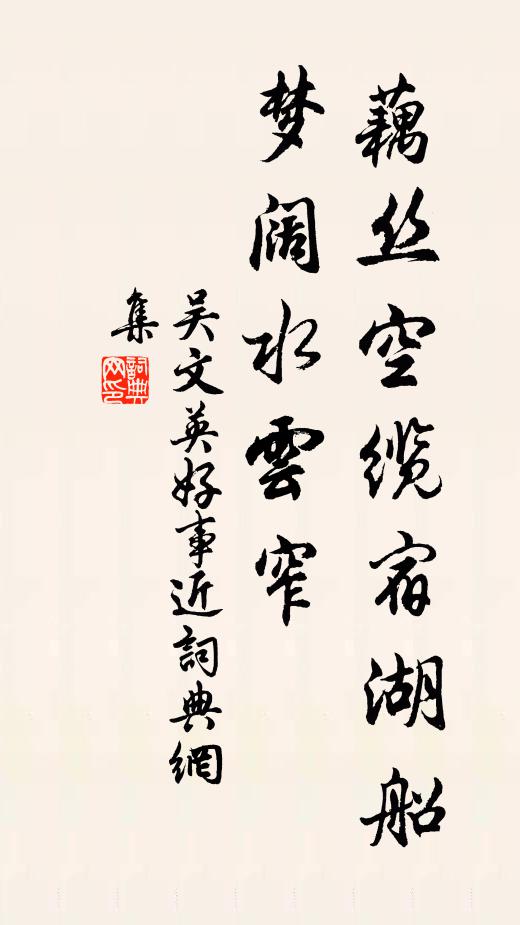 藕丝空缆宿湖船
梦阔水雲窄
吴文英好事近詞典網
集
詞典網印